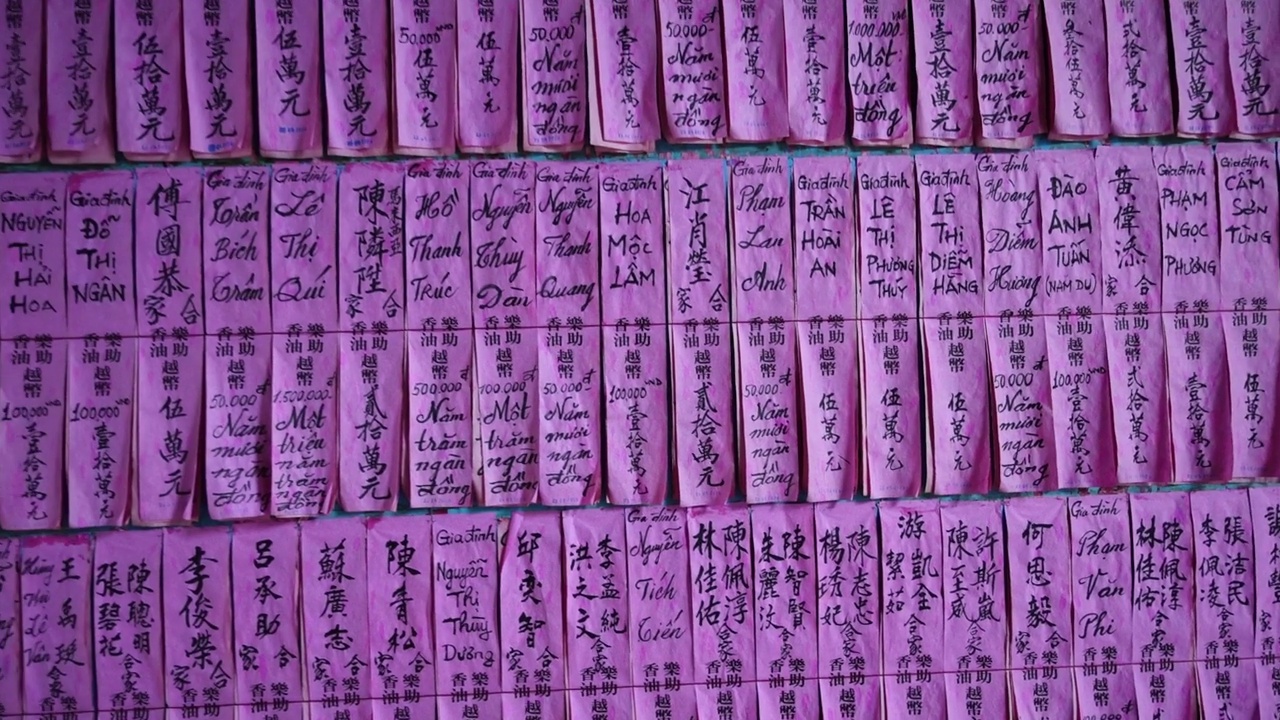 越幣 壹拾萬元
越幣 壹拾萬元
越幣 伍拾萬元
越幣 壹拾萬元
越幣 伍萬元
越幣 壹拾萬元
越幣 50.000 伍萬元
越幣 伍萬元
越幣 50.000đ Năm mươi ngàn đồng
越幣 壹拾萬元
越幣 50.000đ Năm mươi ngàn đồng
越幣 伍萬元
越幣 壹拾萬元
越幣 1.000.000 VNĐ Một triệu đồng
越幣 壹拾萬元
越幣 50.000đ Năm mươi ngàn đồng
越幣 叁拾伍萬元
越幣 弍拾萬元
越幣 壹拾萬元
越幣 壹拾萬元
Gia đình NGUYỄN THỊ HẢI HOA 樂助香油 越幣 100.000 VNĐ 壹拾萬元
Gia đình ĐỖ THỊ NGÂN 樂助香油 越幣 100.000 VNĐ 壹拾萬元
傅國恭 合家 樂助香油 越幣 伍萬元
Gia đình Trần Bích Trâm 樂助香油 越幣 50.000đ Năm mươi ngàn đồng
Gia đình Lê Thị Quí 樂助香油 越幣 1.500.000đ Một triệu năm trăm ngàn đồng
陳隣陞 馬來西亞 合家 樂助香油 越幣 貳拾萬元
Gia đình Hồ Thanh Trúc 樂助香油 越幣 500.000đ Năm trăm ngàn đồng
Gia đình Nguyễn Thùy Dân 樂助香油 越幣 100.000đ Một trăm ngàn đồng
Gia đình Nguyễn Thanh Quang 樂助香油 越幣 50.000đ Năm mươi ngàn đồng
Gia đình HOA MỘC LÂM 樂助香油 越幣 100.000 VNĐ 壹拾萬元
江肖瑩 合家 樂助香油 越幣 貳拾萬元
Gia đình Phạm Lan Anh 樂助香油 越幣 50.000đ Năm mươi ngàn đồng
Gia đình TRẦN HOÀI AN 樂助香油 越幣 伍萬元
Gia đình LÊ THỊ PHƯƠNG THÚY 樂助香油 越幣 伍萬元
Gia đình LÊ THỊ DIỄM HẰNG 樂助香油 越幣 伍萬元
Gia đình Hoàng Diễm Hương 樂助香油 越幣 50.000đ Năm mươi ngàn đồng
ĐÀO ANH TUẤN (NAM DU) 樂助香油 越幣 100.000 VNĐ 壹拾萬元
黃偉添 合家 樂助香油 越幣 弍拾萬元
Gia đình PHẠM NGỌC PHƯỢNG 樂助香油 越幣 壹拾萬元
Gia đình CẨM SƠN TÙNG 樂助香油 越幣 伍萬元
王禹 合家
陳聰明 張碧花 合家
李俊榮 合家 樂助香油
呂承助 合家 樂助香油
蘇廣志 合家 樂助香油
陳青松 合家 樂助香油
Gia đình Nguyễn Thị Thùy Dương 樂助香油 越幣
邱奕智 合家 樂助香油 越幣
李孟純 洪之文 合家 樂助香油 越幣
Gia đình Nguyễn Tích Tiến 樂助香油 越幣
陳佩淳 林佳佑 合家 樂助香油 越幣
陳智賢 朱麗汶 合家 樂助香油 越幣
陳志忠 楊琇妃 合家 樂助香油 越幣
游凱全 絜茹 合家 樂助香油 越幣
許斯嵐 陳至威 合家 樂助香油 越幣
何思毅 合家 樂助香油 越幣
Gia đình Phạm Văn Phi 樂助香油 越幣
陳佩淳 林佳佑 合家 樂助香油 越幣
張洁民 李佩凌 合家 樂助香油 越幣